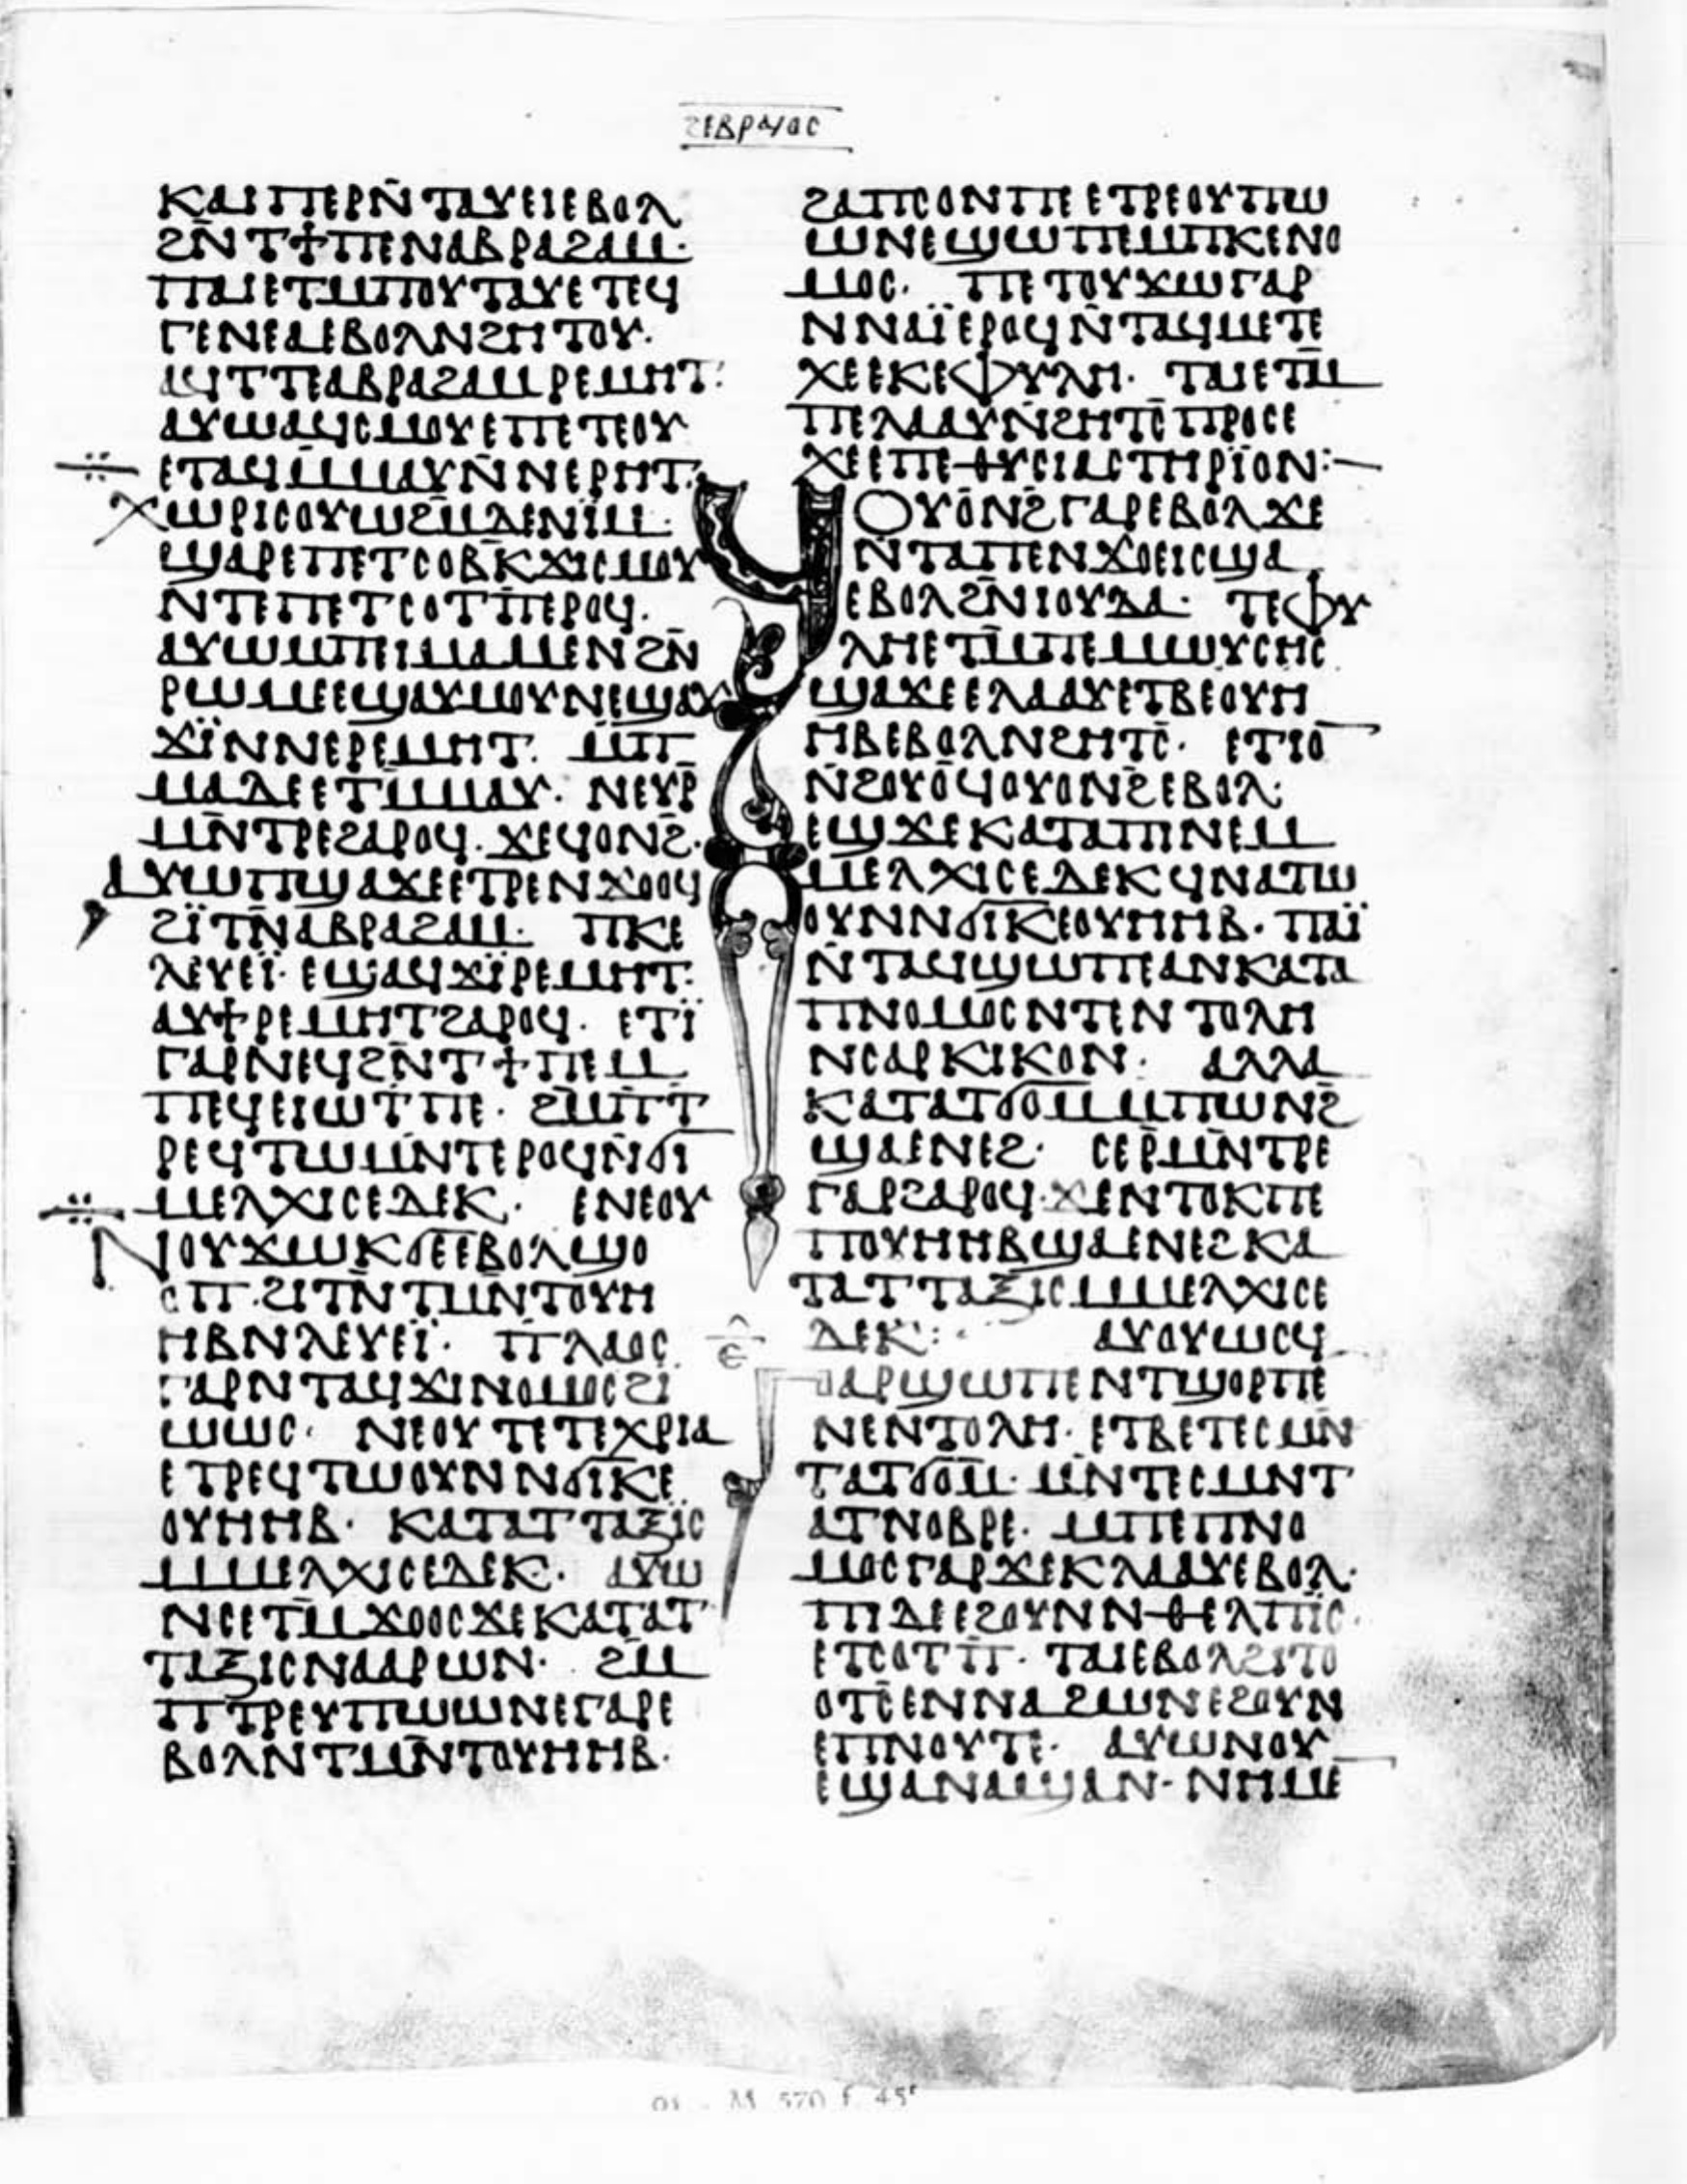 ϩⲉⲃⲣⲁⲓⲟⲥ
ⲕⲁⲓⲡⲉⲣⲛ̄ⲧⲁⲩⲉⲓⲉⲃⲟⲗ
ϩⲛ̄ⲧϯⲡⲉⲛⲁⲃⲣⲁϩⲁⲙ·
ⲡⲁⲓⲉⲧⲙ̄ⲡⲟⲩⲧⲁⲩⲉⲧⲉϥ
ⲅⲉⲛⲉⲁⲉⲃⲟⲗⲛϩⲏⲧⲟⲩ·
ⲁϥⲧⲧⲉⲁⲃⲣⲁϩⲁⲙⲣⲉⲙⲏⲧ·
ⲁⲩⲱⲁϥⲥⲙⲟⲩⲉⲡⲉⲧⲉⲟⲩ
ⲉⲧⲁϥⲙ̄ⲙⲁⲩⲛ̄ⲛⲉⲣⲏⲧ·
ⲭⲱⲣⲓⲥⲟⲩⲱϩⲙ̄ⲇⲉⲛⲓⲙ·
ⲉϣⲁⲣⲉⲡⲉⲧⲥⲟⲃⲕ̄ϫⲓⲥⲙⲟⲩ
ⲛⲧⲉⲡⲉⲧⲥⲟⲧⲡ̄ⲉⲣⲟϥ·
ⲁⲩⲱⲙⲡⲉⲓⲙⲁⲙⲉⲛϩⲛ̄
ⲣⲱⲙⲉⲉϣⲁⲩⲙⲟⲩⲛⲉϣⲁⲩ
ϫⲓ̈ⲛⲛⲉⲣⲉⲙⲏⲧ· ⲙ̄ⲡ
ⲙⲁⲇⲉⲉⲧⲙ̄ⲙⲁⲩ· ⲛⲉⲩⲣ̄
ⲙⲛ̄ⲧⲣⲉϩⲁⲣⲟϥ· ϫⲉϥⲟⲛϩ̄·
ⲁⲩⲱⲡϣⲁϫⲉⲉⲧⲣⲉⲛϫⲟⲟϥ
ϩⲓ̈ⲧⲛ̄ⲁⲃⲣⲁϩⲁⲙ· ⲡⲕⲉ
ⲗⲉⲩⲉⲓ̈· ⲉϣⲁϥϫⲓ̈ⲣⲉⲙⲏⲧ·
ⲁⲩϯⲣⲉⲙⲏⲧϩⲁⲣⲟϥ· ⲉⲧⲓ̈
ⲅⲁⲣⲛⲉϥϩⲛ̄ⲧϯⲡⲉⲙ
ⲡⲉϥⲉⲓⲱⲧⲡⲉ· ϩⲙ̄ⲡⲧ
ⲣⲉϥⲧⲱⲙⲛ̄ⲧⲉⲣⲟϥⲛ̄ϭⲓ
ⲙⲉⲗⲭⲓⲥⲉⲇⲉⲕ· ⲉⲛⲉⲟⲩ
ⲛⲟⲩϫⲱⲕϭⲉⲉⲃⲟⲗϣⲟ
ⲟⲡ·ϩⲓⲧⲛ̄ⲧⲙⲛ̄ⲧⲟⲩⲏ
ⲏⲃⲛⲗⲉⲩⲉⲓ̈· ⲡⲗⲁⲟⲥ
ⲅⲁⲣⲛⲧⲁϥϫⲓⲛⲟⲙⲟⲥϩⲓ
ⲱⲱⲥ· ⲛⲉⲟⲩⲧⲉⲧⲉⲭⲣⲓⲁ
ⲉⲧⲣⲉϥⲧⲱⲟⲩⲛⲛϭⲓⲕⲉ
ⲟⲩⲏⲏⲃ· ⲕⲁⲧⲁⲧⲧⲁⲝⲓⲥ
ⲙⲙⲉⲗⲭⲓⲥⲉⲇⲉⲕ· ⲁⲩⲱ
ⲛⲥⲉⲧⲙ̄ϫⲟⲟⲥϫⲉⲕⲁⲧⲁⲧ
ⲧⲁⲝⲓⲥⲛⲁⲁⲣⲱⲛ· ϩⲙ̄
ⲡⲧⲣⲉⲩⲡⲱⲱⲛⲉⲅⲁⲣⲉ
ⲃⲟⲗⲛⲧⲙⲛ̄ⲧⲟⲩⲏⲏⲃ·
ϩⲁⲡⲥⲟⲛⲡⲉⲉⲧⲣⲉⲟⲩⲡⲱ
ⲱⲛⲉϣⲱⲡⲉⲙⲡⲕⲉⲛⲟ
ⲙⲟⲥ· ⲡⲉⲧⲟⲩϫⲱⲅⲁⲣ
ⲛⲛⲁⲓ̈ⲉⲣⲟϥⲛ̄ⲧⲁϥⲙⲉⲧⲉ
ⲭⲉⲉⲕⲉⲫⲩⲗⲏ· ⲧⲁⲓⲉⲧⲙ̄
ⲡⲉⲗⲁⲁⲩⲛ̄ϩⲏⲧⲥ̄ⲡⲣⲟⲥⲉ
ⲭⲉⲉⲡⲉⲑⲩⲥⲓⲁⲥⲧⲏⲣⲓⲟⲛ:—
ϥⲟⲩⲟⲛϩ̄ⲅⲁⲣⲉⲃⲟⲗϫⲉ
ⲛ̄ⲧⲁⲡⲉⲛϫⲟⲉⲓⲥϣⲁ
ⲉⲃⲟⲗϩⲛ̄ⲓⲟⲩⲇⲁ· ⲧⲉⲫⲩ
ⲗⲏⲉⲧⲙ̄ⲡⲉⲙⲱⲩⲥⲏⲥ
ϣⲁϫⲉⲉⲗⲁⲁⲩⲉⲧⲃⲉⲟⲩⲏ
ⲏⲃⲉⲃⲟⲗⲛϩⲏⲧⲥ̄· ⲉⲧⲓⲟ
ⲛ̄ϩⲟⲩⲟϥⲟⲩⲟⲛϩ̄ⲉⲃⲟⲗ·
ⲉϣϫⲉⲕⲁⲧⲁⲡⲓⲛⲉⲙ
ⲙⲉⲗⲭⲓⲥⲉⲇⲉⲕϥⲛⲁⲧⲱ
ⲟⲩⲛⲛϭⲓⲕⲉⲟⲩⲏⲏⲃ· ⲡⲁⲓ̈
ⲛ̄ⲧⲁϥϣⲱⲡⲉⲁⲛⲕⲁⲧⲁ
ⲡⲛⲟⲙⲟⲥⲛⲧⲉⲛⲧⲟⲗⲏ
ⲛⲥⲁⲣⲕⲓⲕⲟⲛ· ⲁⲗⲗⲁ
ⲕⲁⲧⲁⲧϭⲟⲙⲙⲡⲱⲛϩ̄
ϣⲁⲉⲛⲉϩ· ⲥⲉⲣ̄ⲙⲛ̄ⲧⲣⲉ
ⲅⲁⲣϩⲁⲣⲟϥ·ϫⲉⲛⲧⲟⲕⲡⲉ
ⲡⲟⲩⲏⲏⲃϣⲁⲉⲛⲉϩⲕⲁ
ⲧⲁⲧⲧⲁⲝⲓⲥⲙⲙⲉⲗⲭⲓⲥⲉ
ⲇⲉⲕ: ⲁⲩⲟⲩⲱⲥϥ
ⲅⲁⲣϣⲱⲡⲉⲛⲧϣⲟⲣⲡⲉ
ⲛⲉⲛⲧⲟⲗⲏ· ⲉⲧⲃⲉⲧⲉⲥⲙⲛ̄
ⲧⲁⲧϭⲟⲙ· ⲙⲛ̄ⲧⲉⲥⲙⲛⲧ
ⲁⲧⲛⲟⲃⲣⲉ· ⲙⲡⲉⲡⲛⲟ
ⲙⲟⲥⲅⲁⲣϫⲉⲕⲗⲁⲁⲩⲉⲃⲟⲗ·
ⲡⲓⲇⲉⲉϩⲟⲩⲛⲛⲑⲉⲗⲡⲓⲥ·
ⲉⲧⲥⲟⲧⲡ̄· ⲧⲁⲓⲉⲃⲟⲗϩⲓⲧⲟ
ⲟⲧⲥ̄ⲉⲛⲛⲁϩⲱⲛⲉϩⲟⲩⲛ
ⲉⲡⲛⲟⲩⲧⲉ· ⲁⲩⲱⲛⲟⲩ
ⲉϣⲁⲛⲁϣⲁⲛ·ⲛⲏⲙⲉ
ⲉ̂